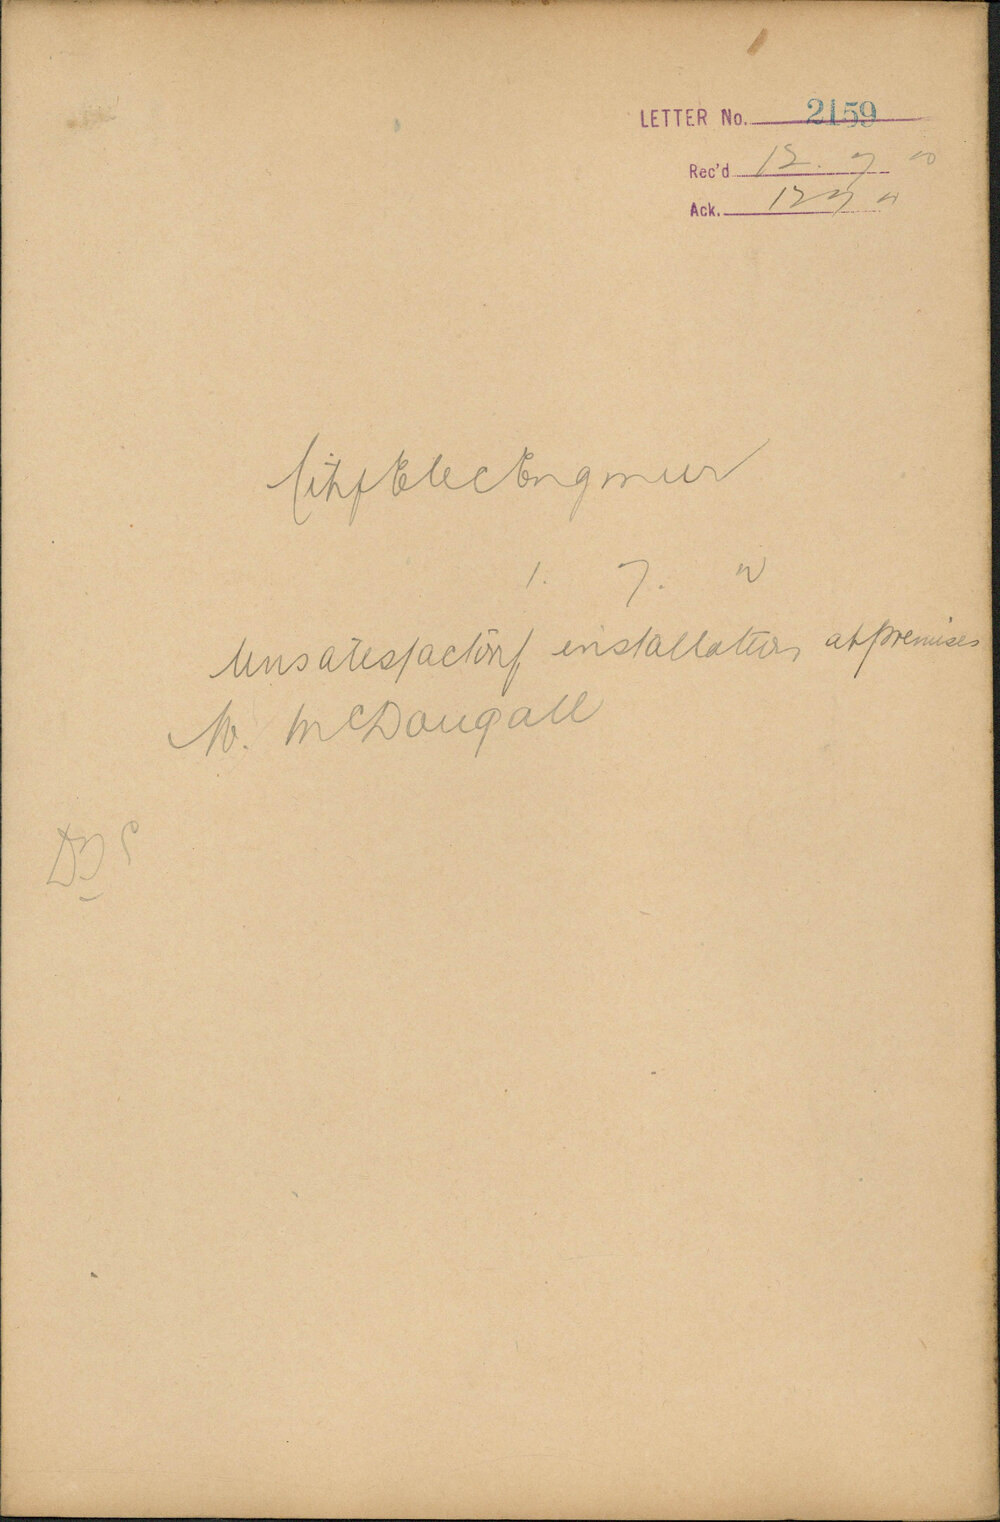 LETTER No. 2159
Rec'd 12. 7
Ack. 12 7
City Elec Engineer
1. 7.
Unsatisfactory installation at premises
W. McDougall